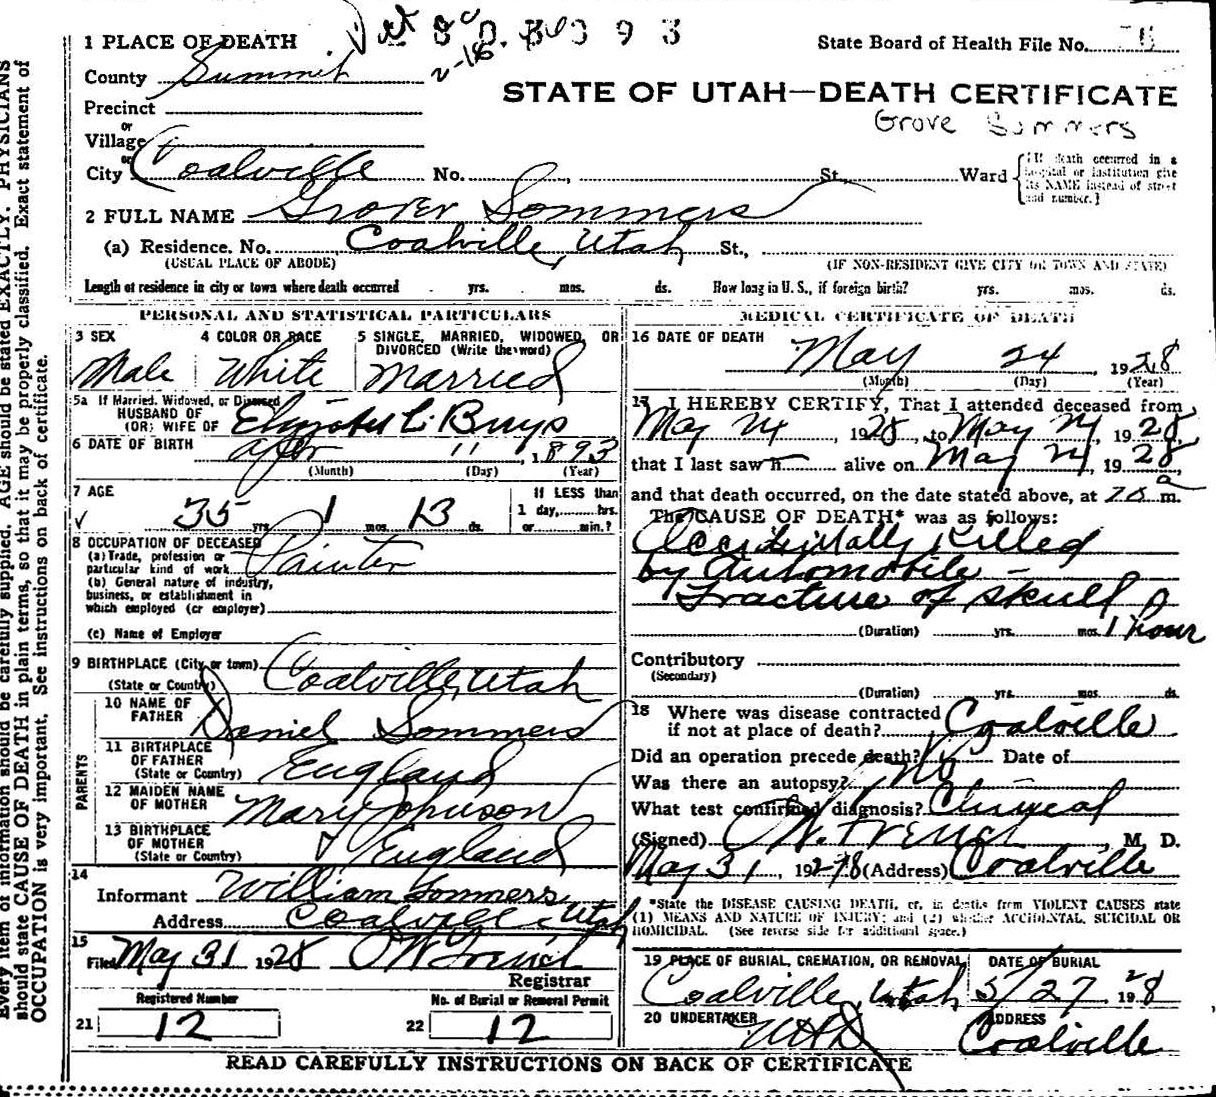 1 PLACE OF DEATH
State Board of Health File No.
County Summit
STATE OF UTAH—DEATH CERTIFICATE
Precinct
Grove Sommers
or
Village
or
City Coalville No. St. Ward
{If death occurred in a hospital or institution give its NAME instead of street and number.}
2 FULL NAME Grover Sommers
(a) Residence. No. Coalville, Utah St.,
(USUAL PLACE OF ABODE) (IF NON-RESIDENT GIVE CITY OR TOWN AND STATE)
Length of residence in city or town where death occurred yrs. mos. ds. How long in U. S., if foreign birth? yrs. mos. ds.
PERSONAL AND STATISTICAL PARTICULARS
3 SEX 4 COLOR OR RACE 5 SINGLE, MARRIED, WIDOWED, OR DIVORCED (Write the word)
Male White Married
5a If Married, Widowed, or Divorced
HUSBAND OF
(OR) WIFE OF Buys
6 DATE OF BIRTH 11, 1893
(Month) (Day) (Year)
7 AGE If LESS than
35 yrs. 1 mos. 13 ds. 1 day, hrs.
or min.?
8 OCCUPATION OF DECEASED
(a) Trade, profession or
particular kind of work Painter
(b) General nature of industry,
business, or establishment in
which employed (or employer)
(c) Name of Employer
9 BIRTHPLACE (City or town)
(State or Country) Coalville, Utah
PARENTS
10 NAME OF
FATHER Daniel Sommers
11 BIRTHPLACE
OF FATHER
(State or Country) England
12 MAIDEN NAME
OF MOTHER Mary Johnson
13 BIRTHPLACE
OF MOTHER
(State or Country) England
14
Informant William Sommers
Address Coalville Utah
15
Filed May 31 1928
Registrar
Registered Number No. of Burial or Removal Permit
21 12 22 12
MEDICAL CERTIFICATE OF DEATH
16 DATE OF DEATH
May 24, 1928
(Month) (Day) (Year)
17 I HEREBY CERTIFY, That I attended deceased from
May 24, 1928, to May 24, 1928,
that I last saw h alive on May 24, 1928,
and that death occurred, on the date stated above, at a m.
The CAUSE OF DEATH* was as follows:
Accidentally Killed
by Automobile —
Fracture of skull
(Duration) yrs. mos. 1 hour
Contributory
(Secondary)
(Duration) yrs. mos. ds.
18 Where was disease contracted
if not at place of death? Coalville
Did an operation precede death? No Date of
Was there an autopsy?
What test confirmed diagnosis? Clinical
(Signed) M. D.
May 31, 1928 (Address) Coalville
*State the DISEASE CAUSING DEATH, or, in deaths from VIOLENT CAUSES state
(1) MEANS AND NATURE OF INJURY; and (2) whether ACCIDENTAL, SUICIDAL OR
HOMICIDAL. (See reverse side for additional space.)
19 PLACE OF BURIAL, CREMATION, OR REMOVAL DATE OF BURIAL
Coalville, Utah 5/27, 1928
20 UNDERTAKER ADDRESS
Coalville
READ CAREFULLY INSTRUCTIONS ON BACK OF CERTIFICATE
Every item of information should be carefully supplied. AGE should be stated EXACTLY. PHYSICIANS
should state CAUSE OF DEATH in plain terms, so that it may be properly classified. Exact statement of
OCCUPATION is very important. See instructions on back of certificate.